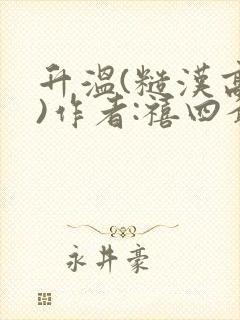 升温(糙漢高
)作者:禧四
永井豪